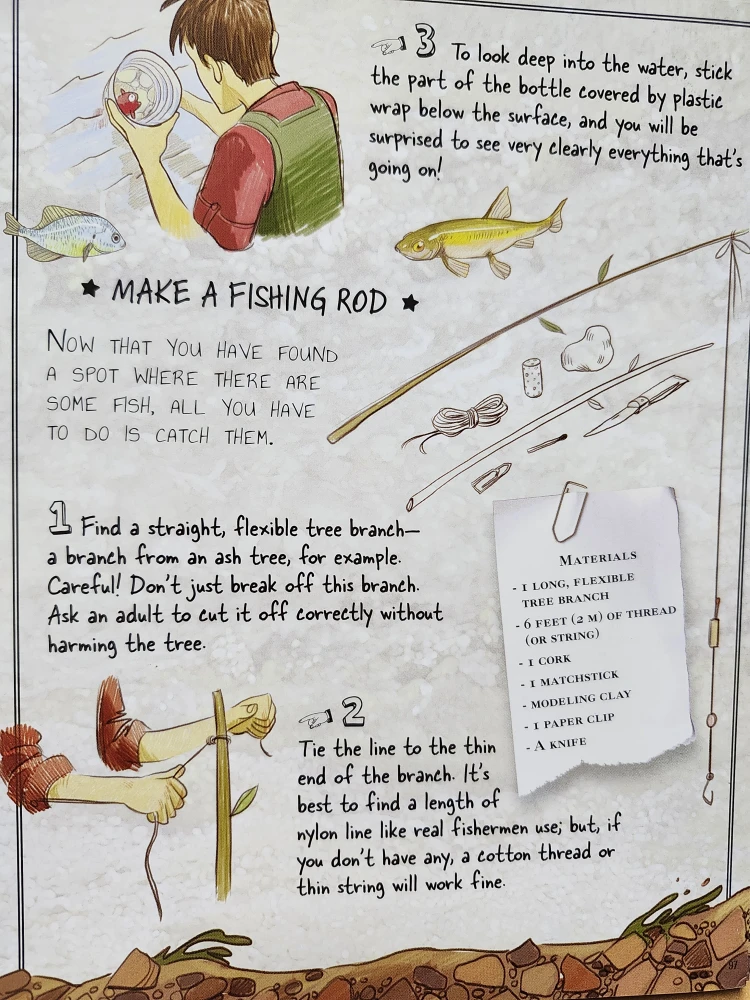 3 To look deep into the water, stick
the part of the bottle covered by plastic
wrap below the surface, and you will be
surprised to see very clearly everything that's
going on!
★ MAKE A FISHING ROD ★
NOW THAT YOU HAVE FOUND
A SPOT WHERE THERE ARE
SOME FISH, ALL YOU HAVE
TO DO IS CATCH THEM.
1 Find a straight, flexible tree branch—
a branch from an ash tree, for example.
Careful! Don't just break off this branch.
Ask an adult to cut it off correctly without
harming the tree.
MATERIALS
- 1 LONG, FLEXIBLE
TREE BRANCH
- 6 FEET (2 M) OF THREAD
(OR STRING)
- 1 CORK
- 1 MATCHSTICK
- MODELING CLAY
- 1 PAPER CLIP
- A KNIFE
2
Tie the line to the thin
end of the branch. It's
best to find a length of
nylon line like real fishermen use; but, if
you don't have any, a cotton thread or
thin string will work fine.
97